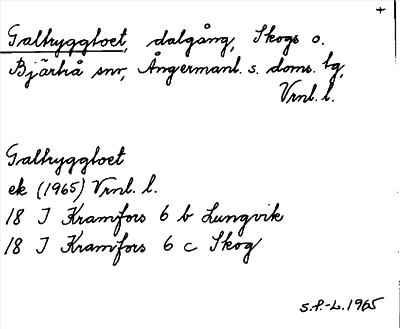 +
Galtryggtoet, dalgång, Skogs o.
Bjärtrå snr, Ångermanl. s. doms. tg,
Vrnl. l.
Galtryggtoet
ek (1965) Vrnl. l.
18 I Kramfors 6 b Lungvik
18 I Kramfors 6 c Skog
S.P.-L. 1965